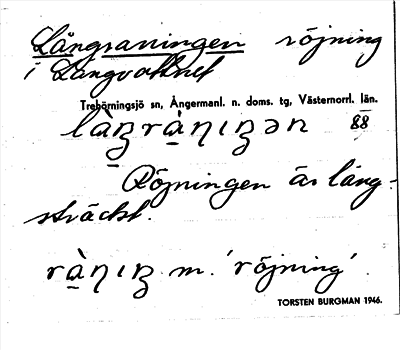 Långraningen röjning
i Långvattnet
Trehörningsjö sn, Ångermanl. n. doms. tg, Västernorrl. län.
88
Röjningen är lång-
sträckt.
m. 'röjning'
TORSTEN BURGMAN 1946.